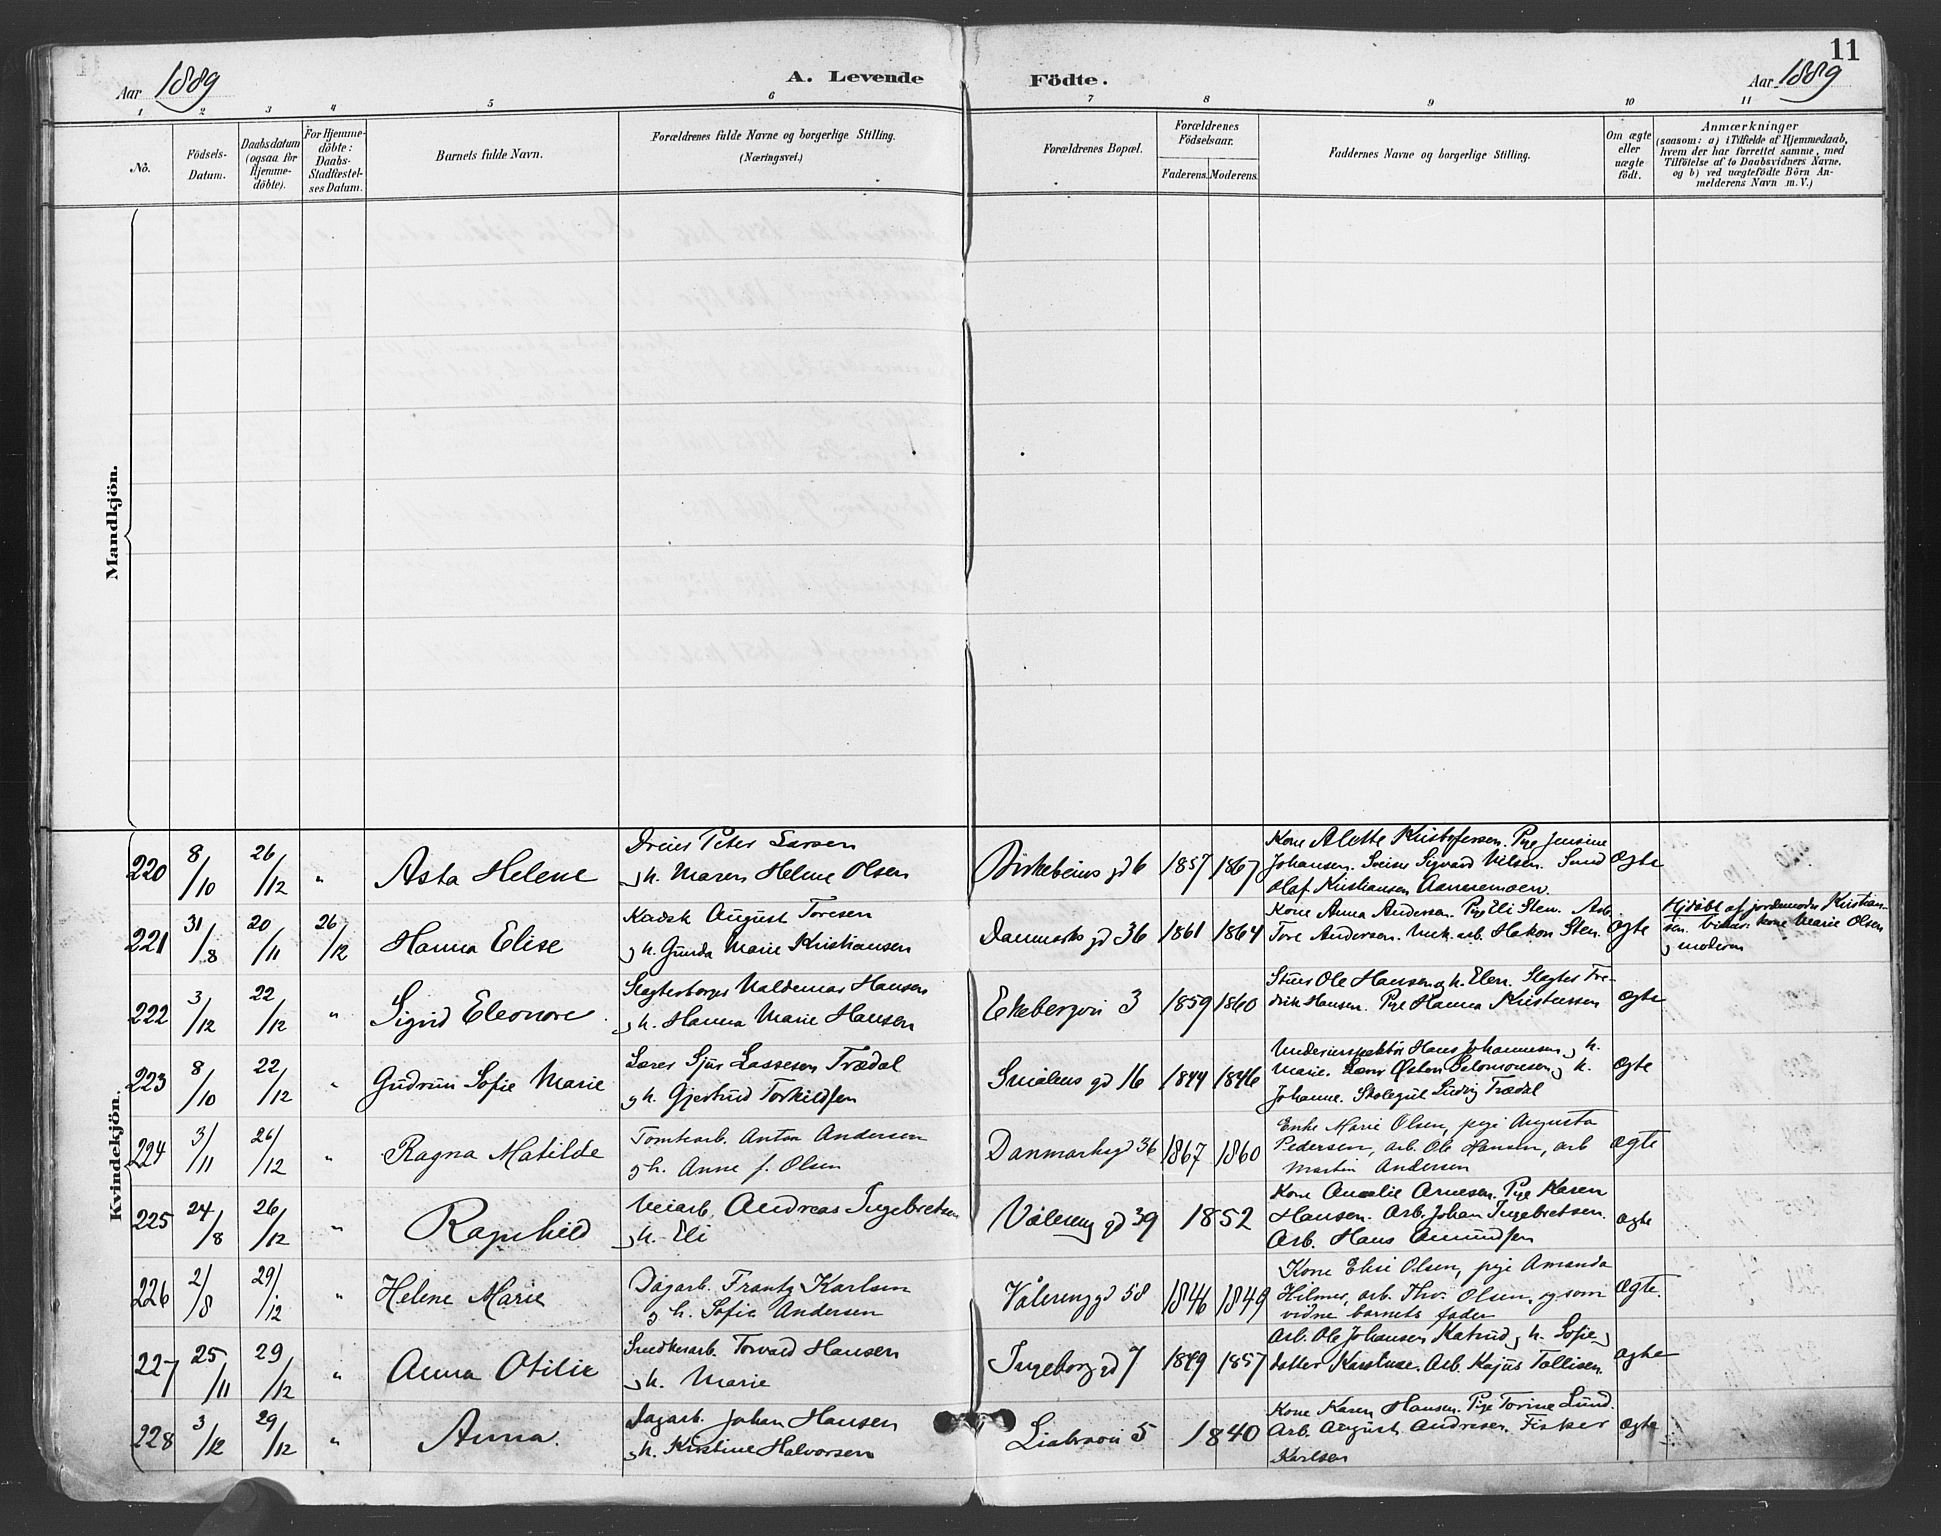 11
Aar 1889
A. Levende Födte.
Aar 1889
1 2 3 4 5 6 7 8 9 10 11
No.
Födsels-
Datum.
Daabsdatum
(ogsaa for
Hjemme-
döbte).
For Hjemme-
döbte:
Daabs-
Stadfæstel-
ses Datum.
Barnets fulde Navn.
Forældrenes fulde Navne og borgerlige Stilling.
(Næringsvei.)
Forældrenes Bopæl.
Forældrenes
Födselsaar.
Faderens. Moderens.
Faddernes Navne og borgerlige Stilling.
Om ægte
eller
uægte
födt.
Anmærkninger
(saasom: a) i Tilfælde af Hjemmedaab,
hvem der har forrettet samme, med
Tilföielse af to Daabsvidners Navne,
og b) ved uægtefödte Börn An-
melderens Navn m. V.)
Mandkjön.
Kvindekjön.
220 8/10 26/12 " Asta Helene
Dreier Peter Larsen
og h. Maren Helene Olsen
Birkebeins gd 6 1857 1867
Kone Alette Kristofersen. Pige Jensine
Johansen. Sveiser Sigvard Nilsen. Smed
Olaf Kristiansen Aannemoen.
Ægte
221 31/8 20/11 26/12 Hanna Elise
Kudsk August Toresen
og h. Gunda Marie Kristiansen
Danmarks gd 36 1861 1864
Kone Anna Andersen. Pige Eli Sten. Arb.
Tore Andersen. Mek. arb. Hakon Sten.
Ægte
Hjdøbt af jordmoder Kristian-
sen. Vidner: kone Marie Olsen
og moderen
222 3/12 22/12 " Sigrid Eleonore.
Slagterborger Valdemar Hansen
og h. Hanna Marie Hansen
Ekebergvei 3 1859 1860
Stuer Ole Hansen og h. Elen. Slagter Fre-
drik Hansen. Pige Hanna Kristensen
Ægte
223 8/10 22/12 " Gudrun Sofie Marie
Lærer Sjur Lassesen Trædal
og h. Gjertrud Torkildsen
Smålens gd 16 1844 1846
Underinspektör Hans Johannesen og h.
Marie. Lærer Østen Salomonsen og h.
Johanne. Skolegut Ludvig Trædal
Ægte
224 3/11 26/12 " Ragna Matilde
Tomtearb. Anton Andersen
og h. Anne f. Olsen
Danmarksgd 36 1867 1860
Enke Marie Olsen, pige Augusta
Pedersen, arb. Ole Hansen, arb
Martin Andersen
Ægte
225 24/8 26/12 " Ragnhild
Veiarb. Andreas Ingebretsen
og h. Eli
Vålereng gd 39 1852
Kone Amalie Arnesen. Pige Karen
Hansen. Arb. Johan Ingebretsen.
Arb. Hans Amundsen
Ægte
226 2/8 29/12 " Helene Marie
Dagarb. Frantz Karlsen
og h. Sofie Andersen
Vålerenggd 58 1846 1849
Kone Elise Olsen, pige Amanda
Hilmer, arb. Thv. Olsen, og som
vidne barnets fader
Ægte.
227 25/11 29/12 " Anna Otilie
Snedkerarb. Torvald Hansen
og h. Marie
Ingeborg gd 7 1849 1857
Arb. Ole Johansen Katrud og h. Sofie og
datter Kristine. Arb. Kajus Tollisen.
Ægte
228 3/12 29/12 " Anna.
Dagarb. Johan Hansen
og h. Kristine Halvorsen
Liabrovei 5 1840
Kone Karen Hansen. Pige Torine Lund.
Arb. August Andresen. Fisker
Karlsen
Ægte